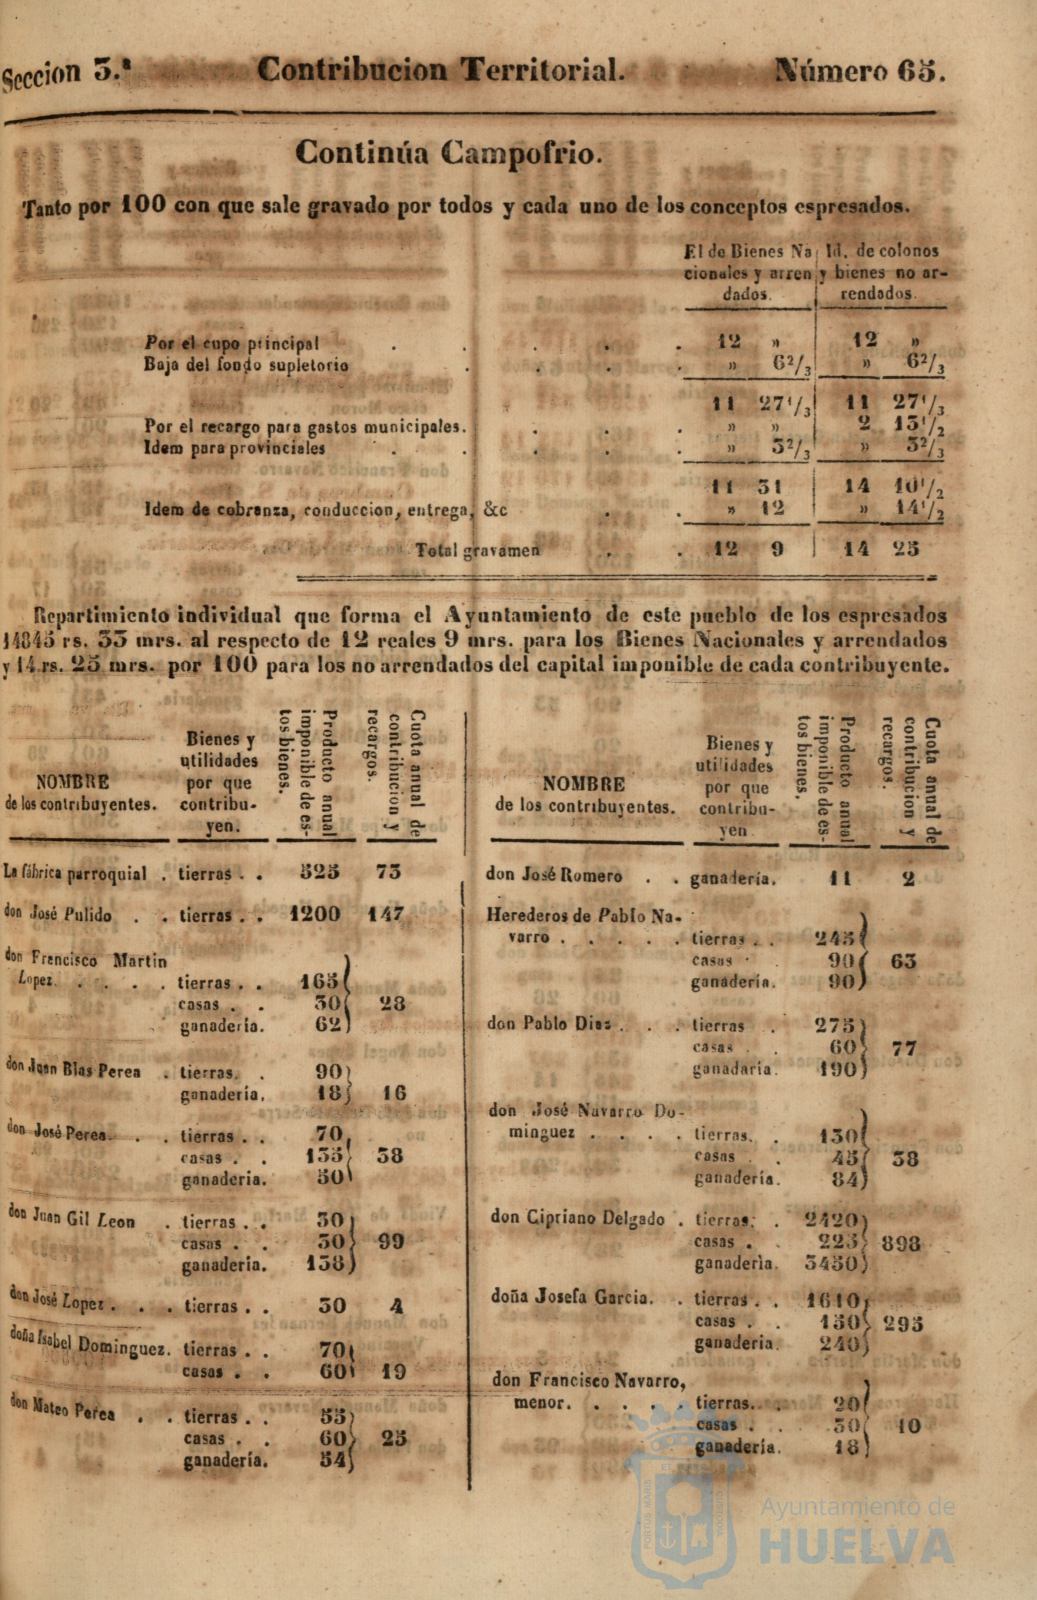 Seccion 3.ª Contribucion Territorial. Número 65.
Continúa Campofrio.
Tanto por 100 con que sale gravado por todos y cada uno de los conceptos espresados.
El de Bienes Na Id. de colonos
cionales y arren y bienes no ar-
dados. rendados.
Por el cupo principal . . . . . 12 » 12 »
Baja del fondo supletorio . . . . » 6 2/3 » 6 2/3
11 27 1/3 11 27 1/3
Por el recargo para gastos municipales. . . . » » 2 13 1/2
Idem para provinciales . . . . . » 3 2/3 » 3 2/3
11 31 14 10 1/2
Idem de cobranza, conduccion, entrega, &c . . » 12 » 14 1/2
Total gravamen . . 12 9 14 25
Repartimiento individual que forma el Ayuntamiento de este pueblo de los espresados
14845 rs. 33 mrs. al respecto de 12 reales 9 mrs. para los Bienes Nacionales y arrendados
y 14 rs. 25 mrs. por 100 para los no arrendados del capital imponible de cada contribuyente.
NOMBRE
de los contribuyentes.
Bienes y
utilidades
por que
contribu-
yen.
Producto anual
imponible de es-
tos bienes.
Cuota anual de
contribucion y
recargos.
La fábrica parroquial . tierras . . 525 73
don José Pulido . . tierras . . 1200 147
don Francisco Martin
Lopez. . . . . tierras . . 165
casas . . 30 28
ganadería. 62
don Juan Blas Perea . tierras. . 90
ganadería. 18 16
don José Perea. . . tierras . . 70
casas . . 135 38
ganaderia. 50
don Juan Gil Leon . tierras . . 30
casas . . 30 99
ganadería. 138
don José Lopez . . . tierras . . 30 4
doña Isabel Dominguez. tierras . . 70
casas . . 60 19
don Mateo Perea . . tierras . . 55
casas . . 60 25
ganadería. 54
NOMBRE
de los contribuyentes.
Bienes y
utilidades
por que
contribu-
yen
Producto anual
imponible de es-
tos bienes.
Cuota anual de
contribucion y
recargos.
don José Romero . . ganadería. 11 2
Herederos de Pablo Na-
varro . . . . . tierras . . 245
casas . 90 63
ganadería. 90
don Pablo Diaz . . . tierras . 275
casas . 60 77
ganadaría. 190
don José Navarro Do-
minguez . . . . tierras. . 130
casas . . 45 38
ganadería. 84
don Cipriano Delgado . tierras. . 2420
casas . . 225 898
ganadería. 3450
doña Josefa Garcia. . tierras . . 1610
casas . . 150 295
ganadería. 240
don Francisco Navarro,
menor. . . . . tierras. . 20
casas . . 30 10
ganadería. 18
PORTUS MARIS
CUSTODIA
Ayuntamiento de
HUELVA